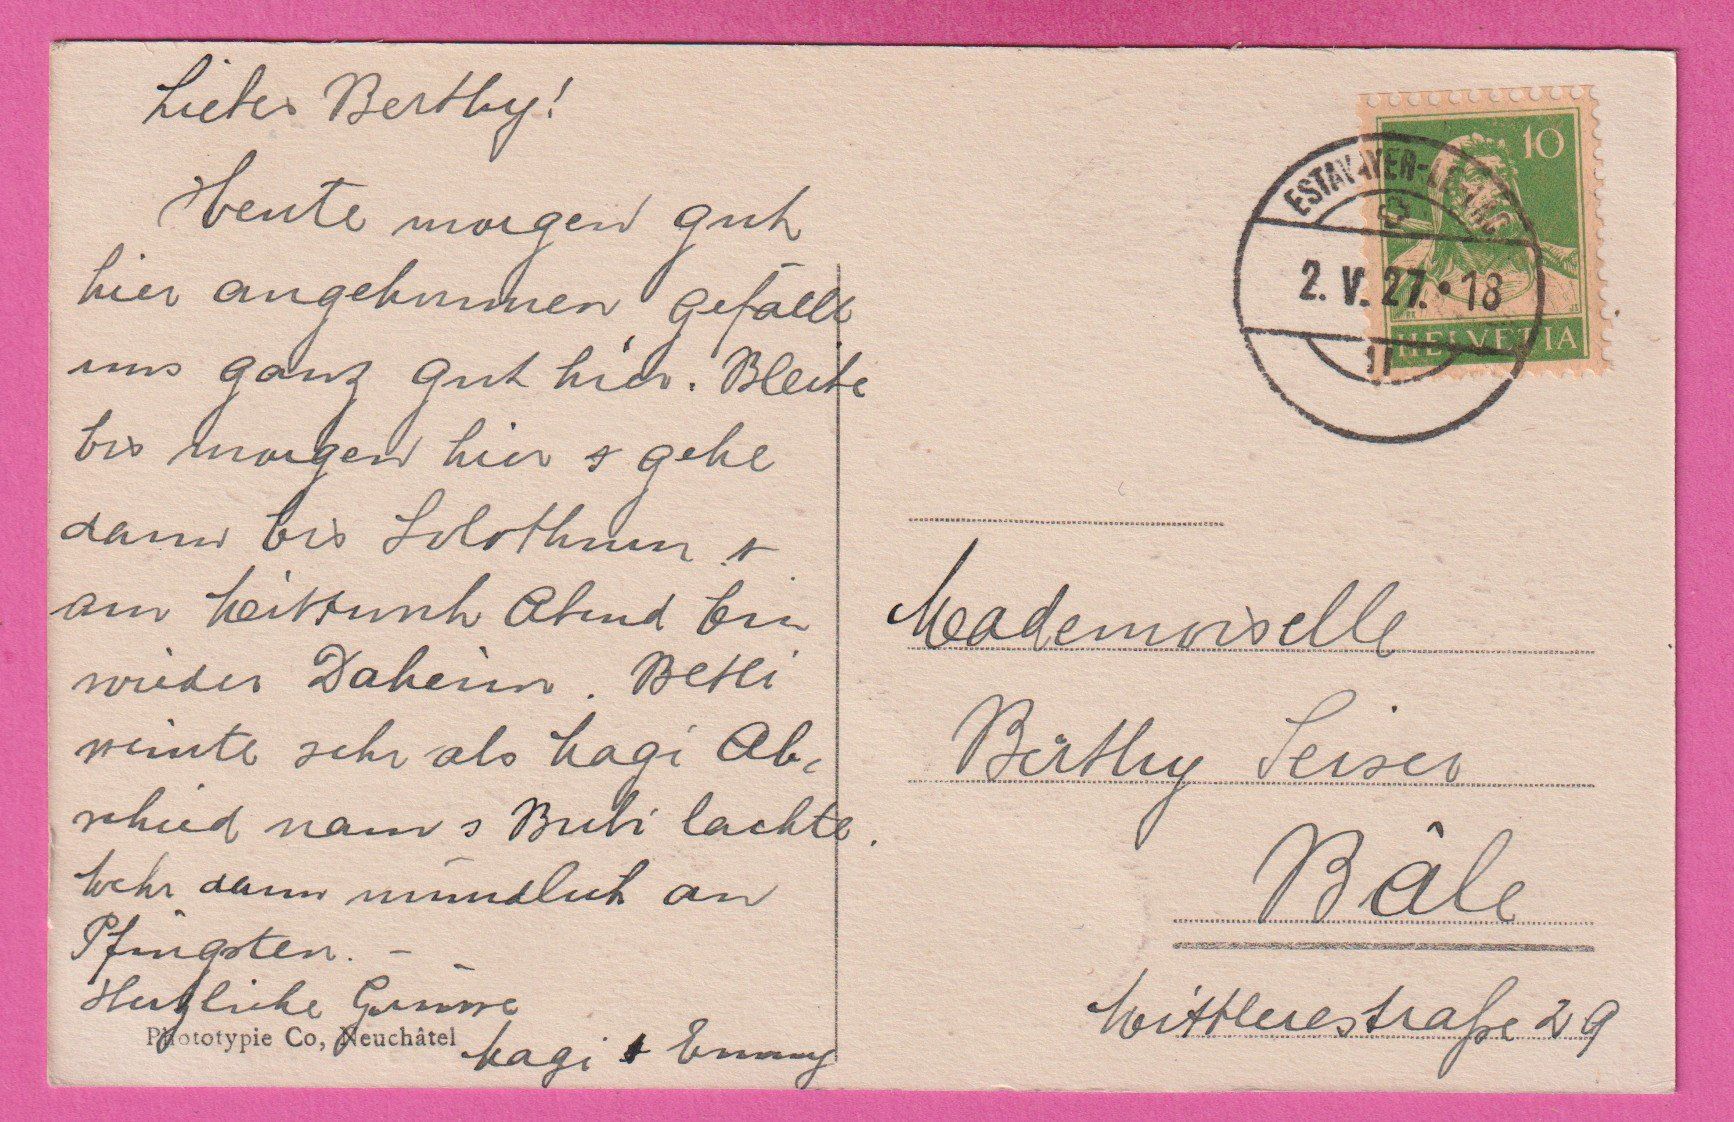 Liebes Berthy!
Heute morgen gut
hier angekommen gefällt
uns ganz gut hier. Bleibe
bis morgen hier & gehe
dann bis Solothurn &
am Mittwuch Abend bin
wieder Daheim. Betti
weinte sehr als Magi Ab-
schied nam & Bubi lachte.
Mehr dann mündlich an
Pfingsten. –
Herzliche Grüsse
Magi & Emmy
Phototypie Co, Neuchâtel
10
HELVETIA
ESTAVAYER-LE-LAC
2. V. 27. • 18
Mademoiselle
Berthy Seiser
Bâle
Mittlerestraße 29